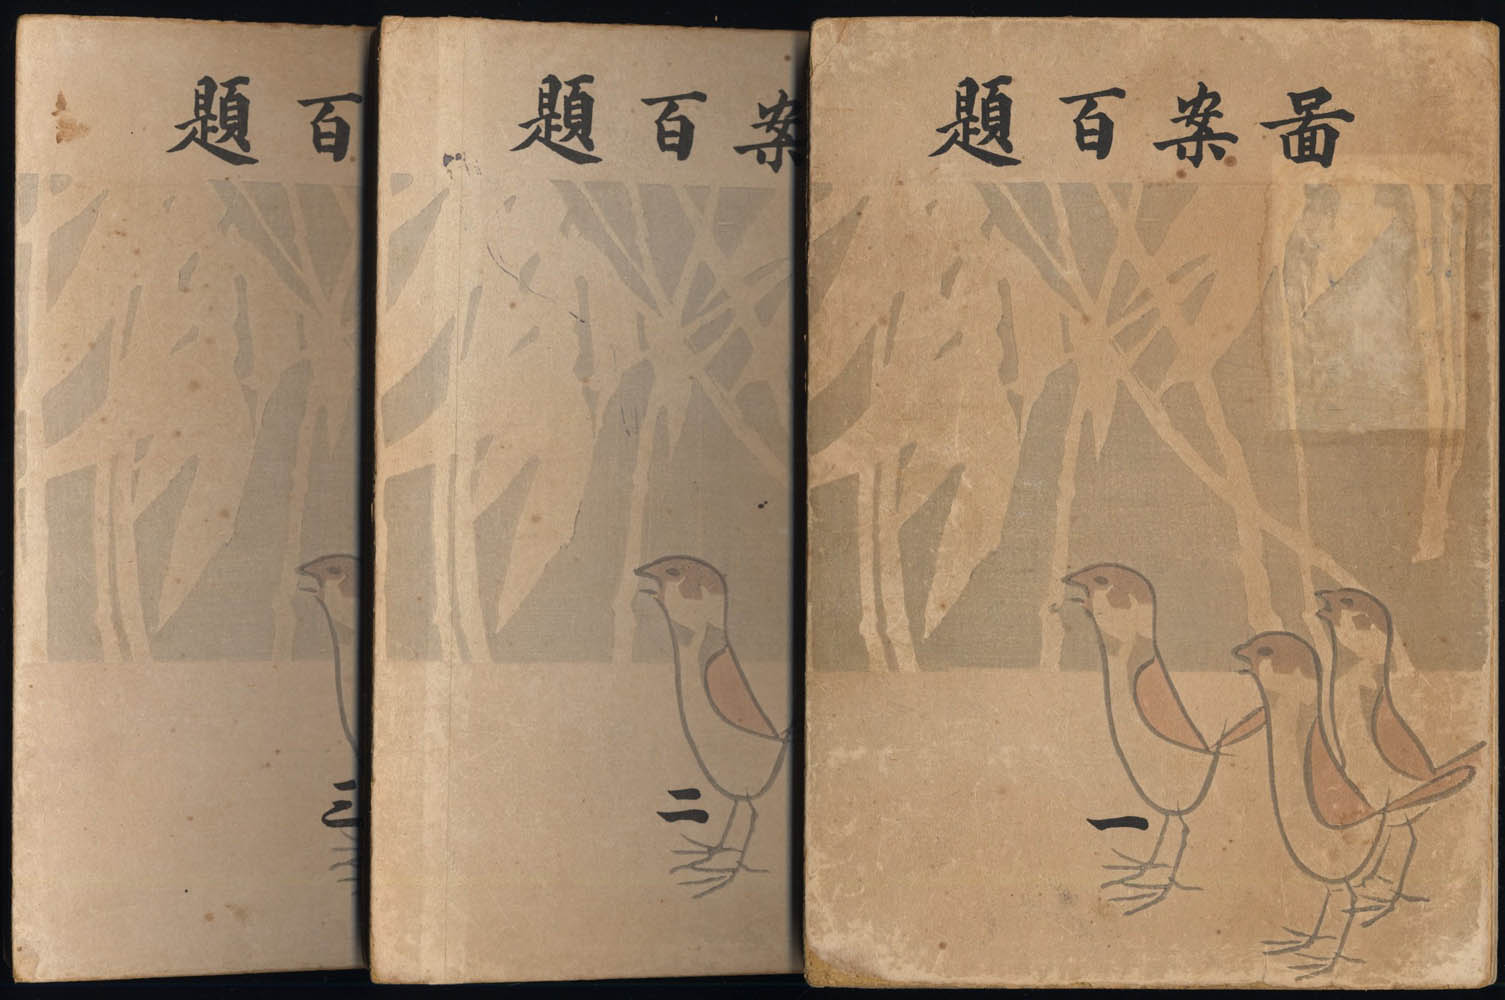 啚案百題
一
案百題
二
百題
三